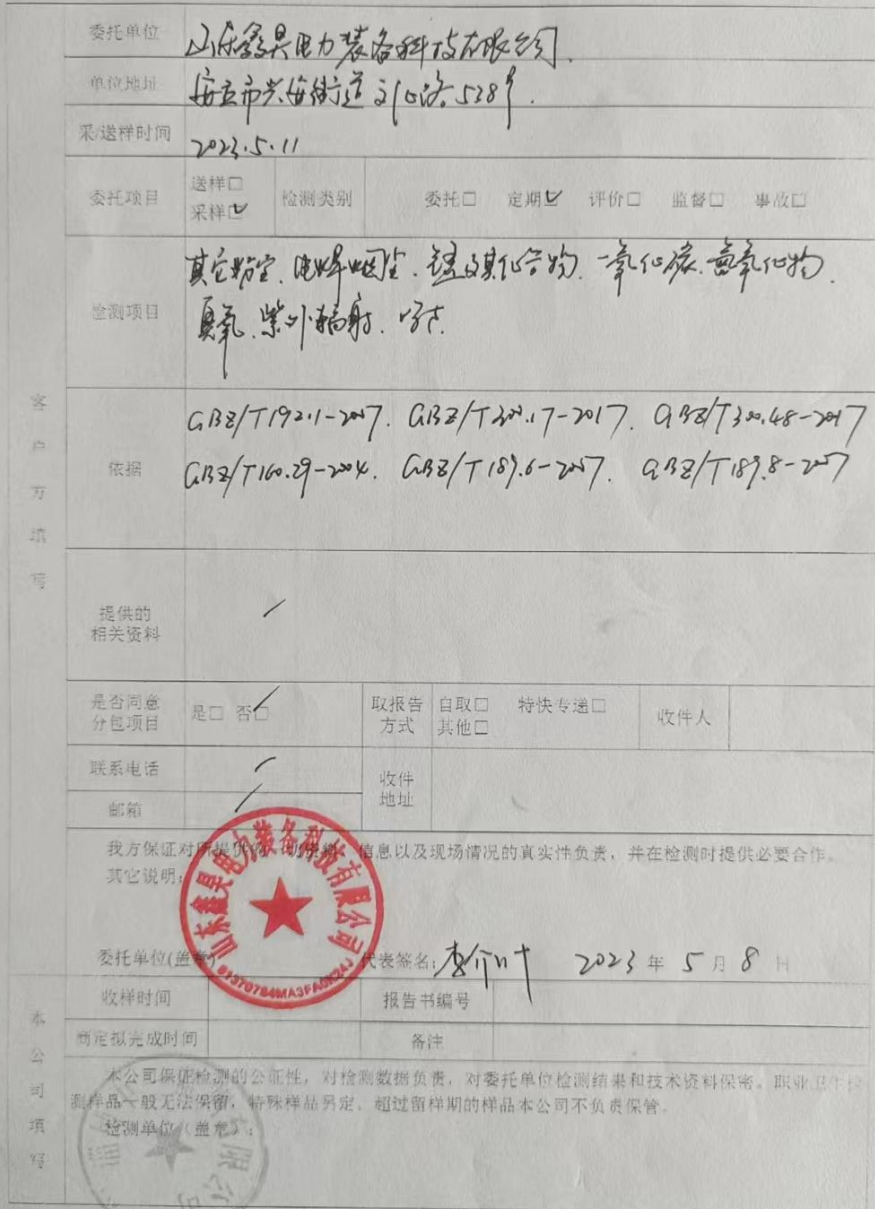 委托单位 山东鑫昊电力装备科技有限公司.
单位地址 安丘市兴安街道文化路528号.
采/送样时间 2023.5.11
委托项目 送样□ 采样☑ 检测类别 委托□ 定期☑ 评价□ 监督□ 事故□
检测项目 其它粉尘、电焊烟尘、锰及其化合物、一氧化碳、氮氧化物、
臭氧、紫外辐射、噪声.
客户方填写
依据 GBZ/T192.1-2007、GBZ/T300.17-2017、GBZ/T300.48-2017
GBZ/T160.29-2004、GBZ/T189.6-2007、GBZ/T189.8-2007
提供的相关资料 /
是否同意分包项目 是□ 否□ 取报告方式 自取□ 特快专递□ 其他□ 收件人
联系电话 / 收件地址
邮箱 /
我方保证对所提供的 信息以及现场情况的真实性负责，并在检测时提供必要合作。
其它说明：
山东鑫昊电力装备科技有限公司
委托单位(盖章) 代表签名: 2023 年 5 月 8 日
收样时间 报告书编号
商定拟完成时间 备注
本公司填写
本公司保证检测的公正性，对检测数据负责，对委托单位检测结果和技术资料保密。职业卫生检
测样品一般无法保留，特殊样品另定，超过留样期的样品本公司不负责保管。
检测单位（盖章）：